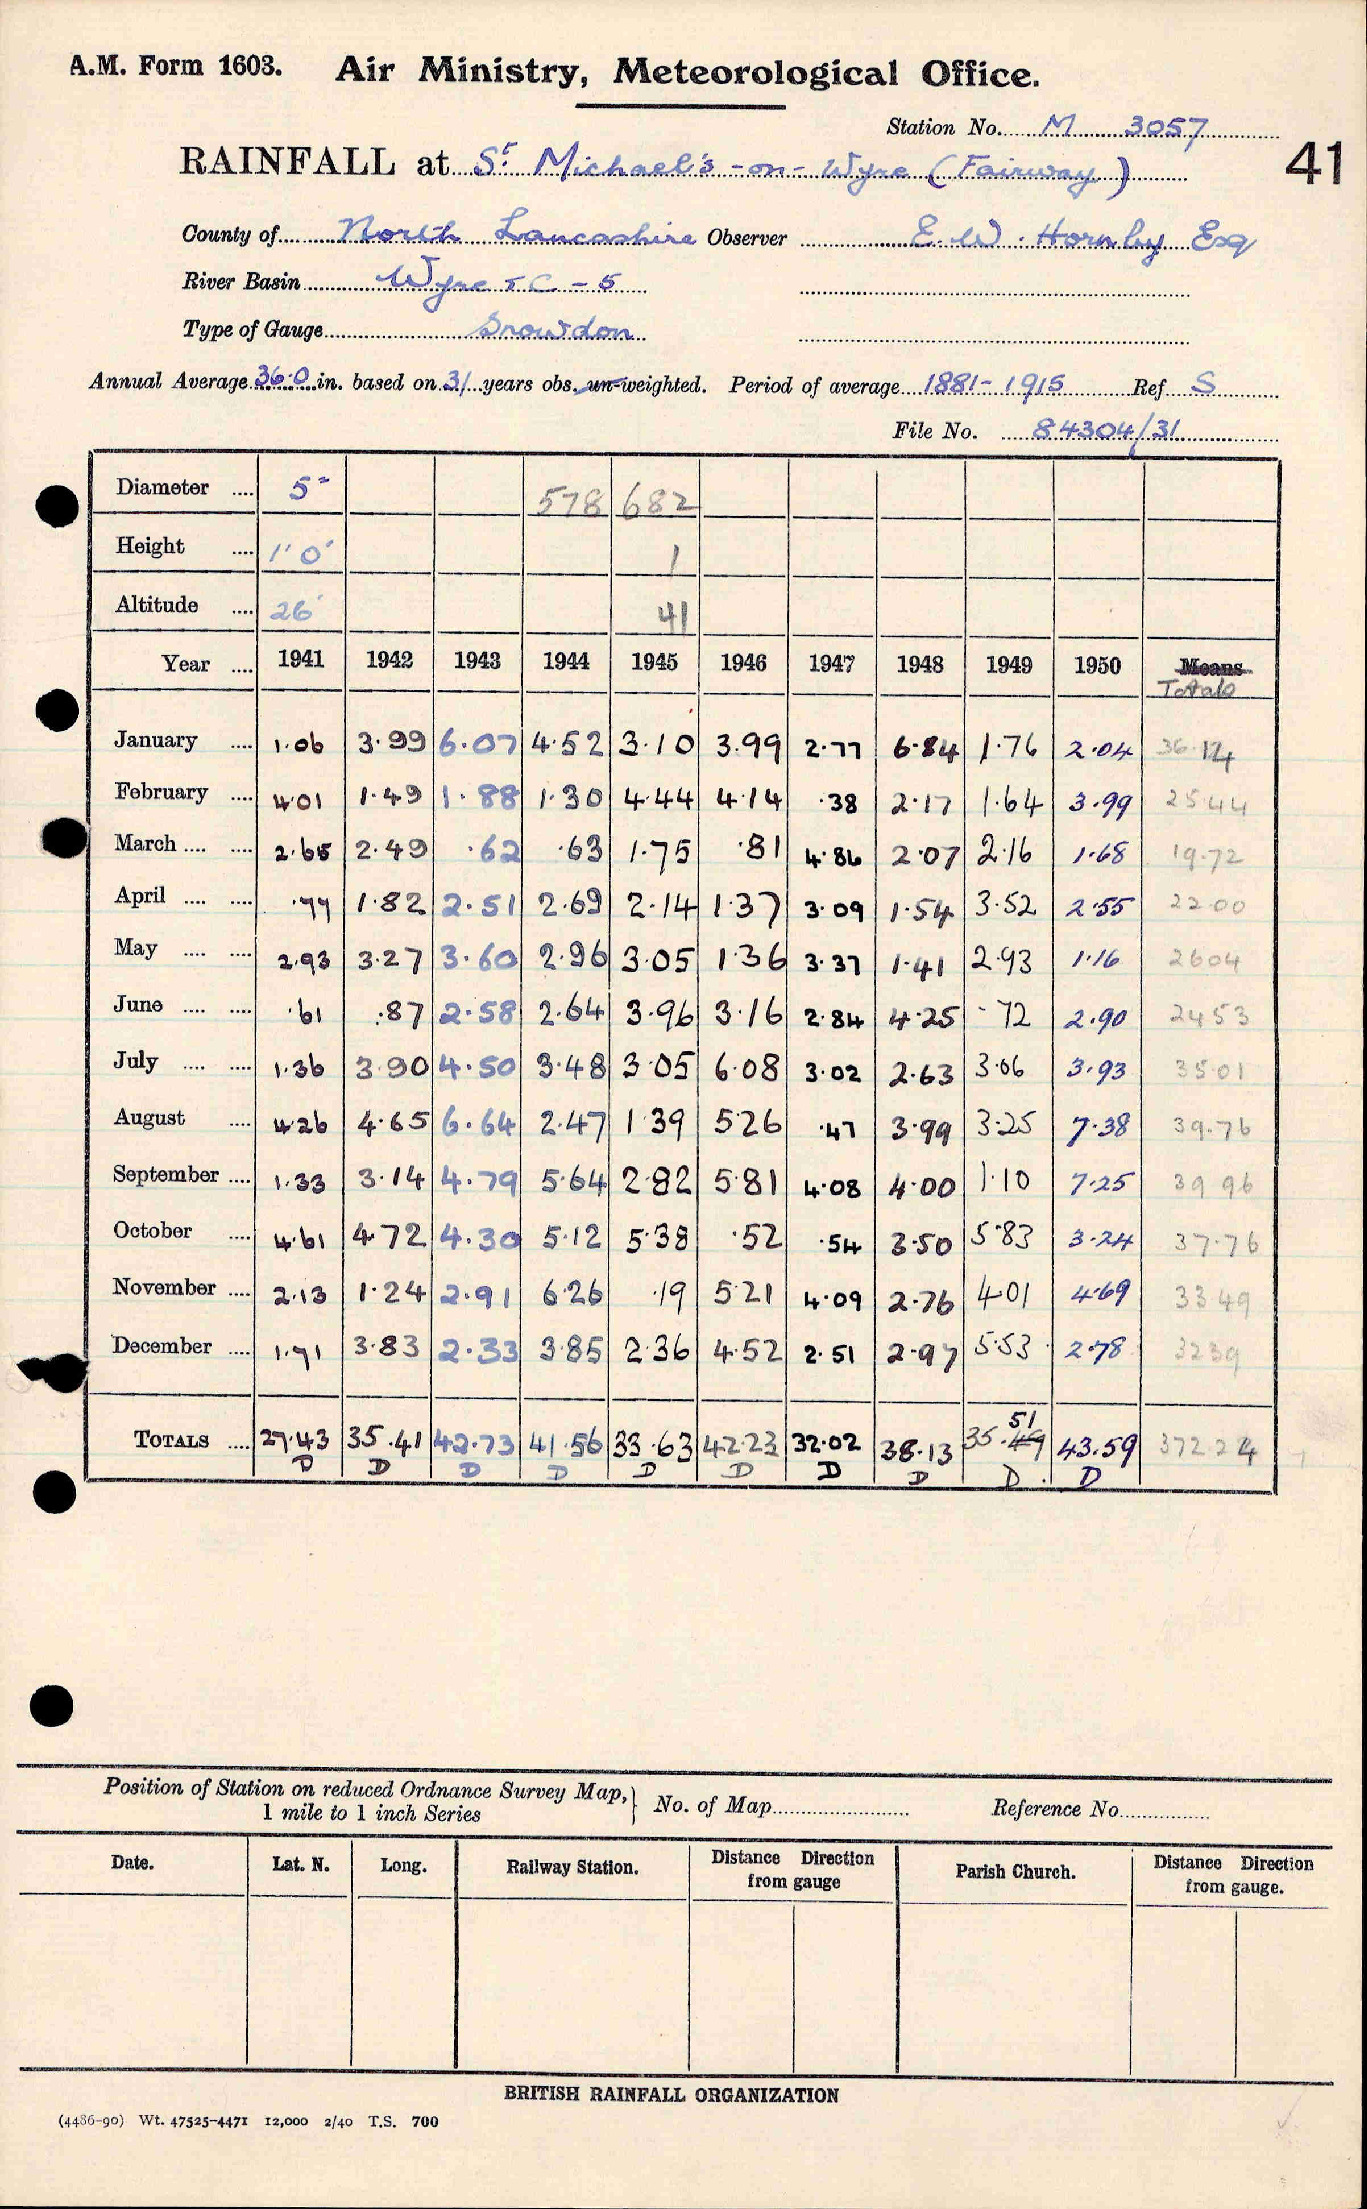 A.M. Form 1603. Air Ministry, Meteorological Office.
Station No. M 3057
41
RAINFALL at St. Michael's-on-Wyre (Fairway)
County of North Lancashire Observer E. W. Hornby Esq
River Basin Wyre - 5
Type of Gauge Snowdon
Annual Average 36.0 in. based on 31 years obs. un-weighted. Period of average 1881-1915 Ref S
File No. 84304/31
Diameter .... 5" 578 682
Height .... 1' 0" 1
Altitude .... 26' 41
Year .... 1941 1942 1943 1944 1945 1946 1947 1948 1949 1950 Means
Totals
January .... 1.06 3.99 6.07 4.52 3.10 3.99 2.77 6.84 1.76 2.04 36.14
February .... 4.01 1.49 1.88 1.30 4.44 4.14 .38 2.17 1.64 3.99 25 44
March .... .... 2.65 2.49 .62 .63 1.75 .81 4.86 2.07 2.16 1.68 19.72
April .... .... .77 1.82 2.51 2.69 2.14 1.37 3.09 1.54 3.52 2.55 22 00
May .... .... 2.93 3.27 3.60 2.96 3.05 1.36 3.37 1.41 2.93 1.16 26 04
June .... .... .61 .87 2.58 2.64 3.96 3.16 2.84 4.25 .72 2.90 24 53
July .... .... 1.36 3.90 4.50 3.48 3 05 6.08 3.02 2.63 3.06 3.93 35 01
August .... 4.26 4.65 6.64 2.47 1 39 5 26 .47 3.99 3.25 7.38 39.76
September .... 1.33 3.14 4.79 5.64 2.82 5.81 4.08 4.00 1.10 7.25 39 96
October .... 4.61 4.72 4.30 5.12 5.38 .52 .54 3.50 5.83 3.24 37.76
November .... 2.13 1.24 2.91 6.26 .19 5.21 4.09 2.76 4.01 4.69 33 49
December .... 1.71 3.83 2.33 3.85 2.36 4.52 2.51 2.97 5.53 2.78 32 39
51
TOTALS .... 27.43 35.41 42.73 41.56 33.63 42.23 32.02 38.13 35.49 43.59 372.24
D D D D D D D D D D
Position of Station on reduced Ordnance Survey Map, 1 mile to 1 inch Series } No. of Map Reference No.
Date. Lat. N. Long. Railway Station. Distance Direction from gauge Parish Church. Distance Direction from gauge.
BRITISH RAINFALL ORGANIZATION
(4486-90) Wt. 47525-4471 12,000 2/40 T.S. 700